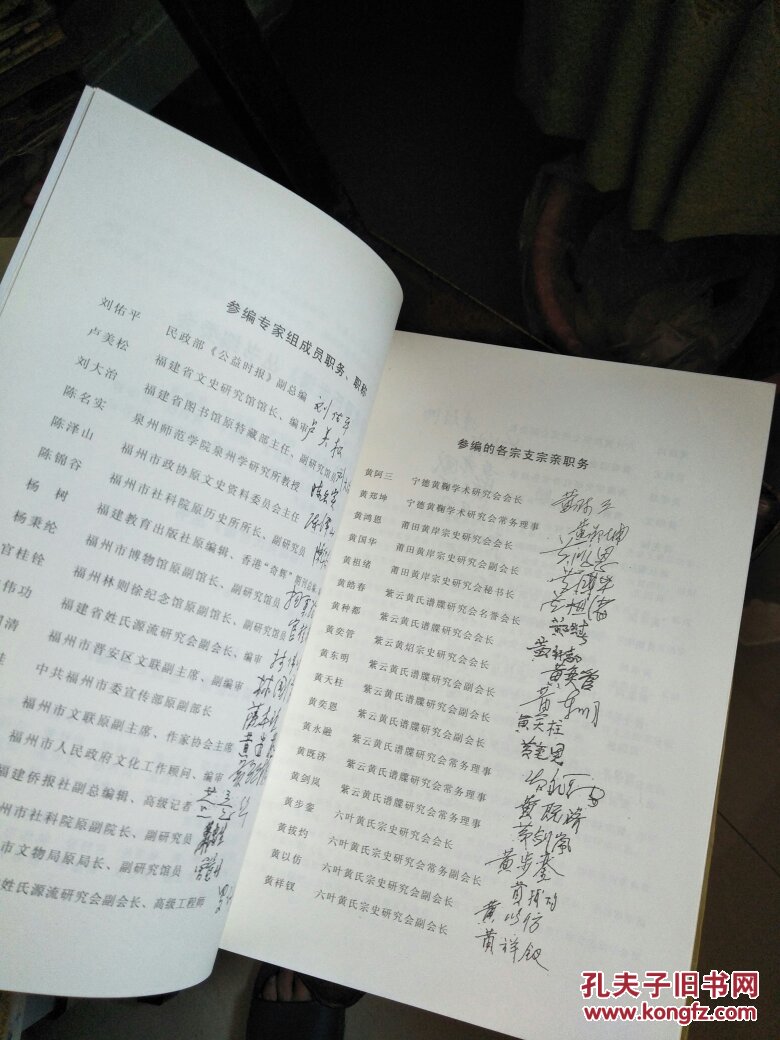 参编专家组成员职务、职称
刘佑平 民政部《公益时报》副总编
卢美松 福建省文史研究馆馆长、编审
刘大治 福建省图书馆原特藏部主任、副研究馆员
陈名实 泉州师范学院泉州学研究所教授
陈泽山 福州市政协原文史资料委员会主任
陈锦谷 福州市社科院原历史所所长、副研究员
杨树 福建教育出版社原编辑、香港“奇辉”
杨秉纶 福州市博物馆原副馆长、副研究馆员
官桂铨 福州林则徐纪念馆原副馆长、副研究馆员
伟功 福建省姓氏源流研究会副会长、编审
清 福州市晋安区文联副主席、副编审
中共福州市委宣传部原副部长
福州市文联原副主席、作家协会主席
福州市人民政府文化工作顾问、编审
福建侨报社副总编辑、高级记者
州市社科院原副院长、副研究员
市文物局原局长、副研究馆员
姓氏源流研究会副会长、高级工程师
刘佑平
卢美松
参编的各宗支宗亲职务
黄阿三 宁德黄鞠学术研究会会长
黄郑坤 宁德黄鞠学术研究会常务理事
黄鸿恩 莆田黄岸宗史研究会会长
黄国华 莆田黄岸宗史研究会副会长
黄祖绪 莆田黄岸宗史研究会秘书长
黄皓春 紫云黄氏谱牒研究会名誉会长
黄种都 紫云黄氏谱牒研究会会长
黄奕管 紫云黄绍宗史研究会会长
黄东明 紫云黄氏谱牒研究会副会长
黄天柱 紫云黄氏谱牒研究会副会长
黄奕恩 紫云黄氏谱牒研究会副会长
黄永融 紫云黄氏谱牒研究会常务理事
黄既济 紫云黄氏谱牒研究会常务理事
黄剑岚 紫云黄氏谱牒研究会常务理事
黄步銮 六叶黄氏宗史研究会会长
黄拔灼 六叶黄氏宗史研究会常务副会长
黄以仿 六叶黄氏宗史研究会副会长
黄祥钗 六叶黄氏宗史研究会副会长
黄郑坤
黄奕管
黄天柱
黄既济
黄步銮
黄以仿
黄祥钗
孔夫子旧书网
www.kongfz.com